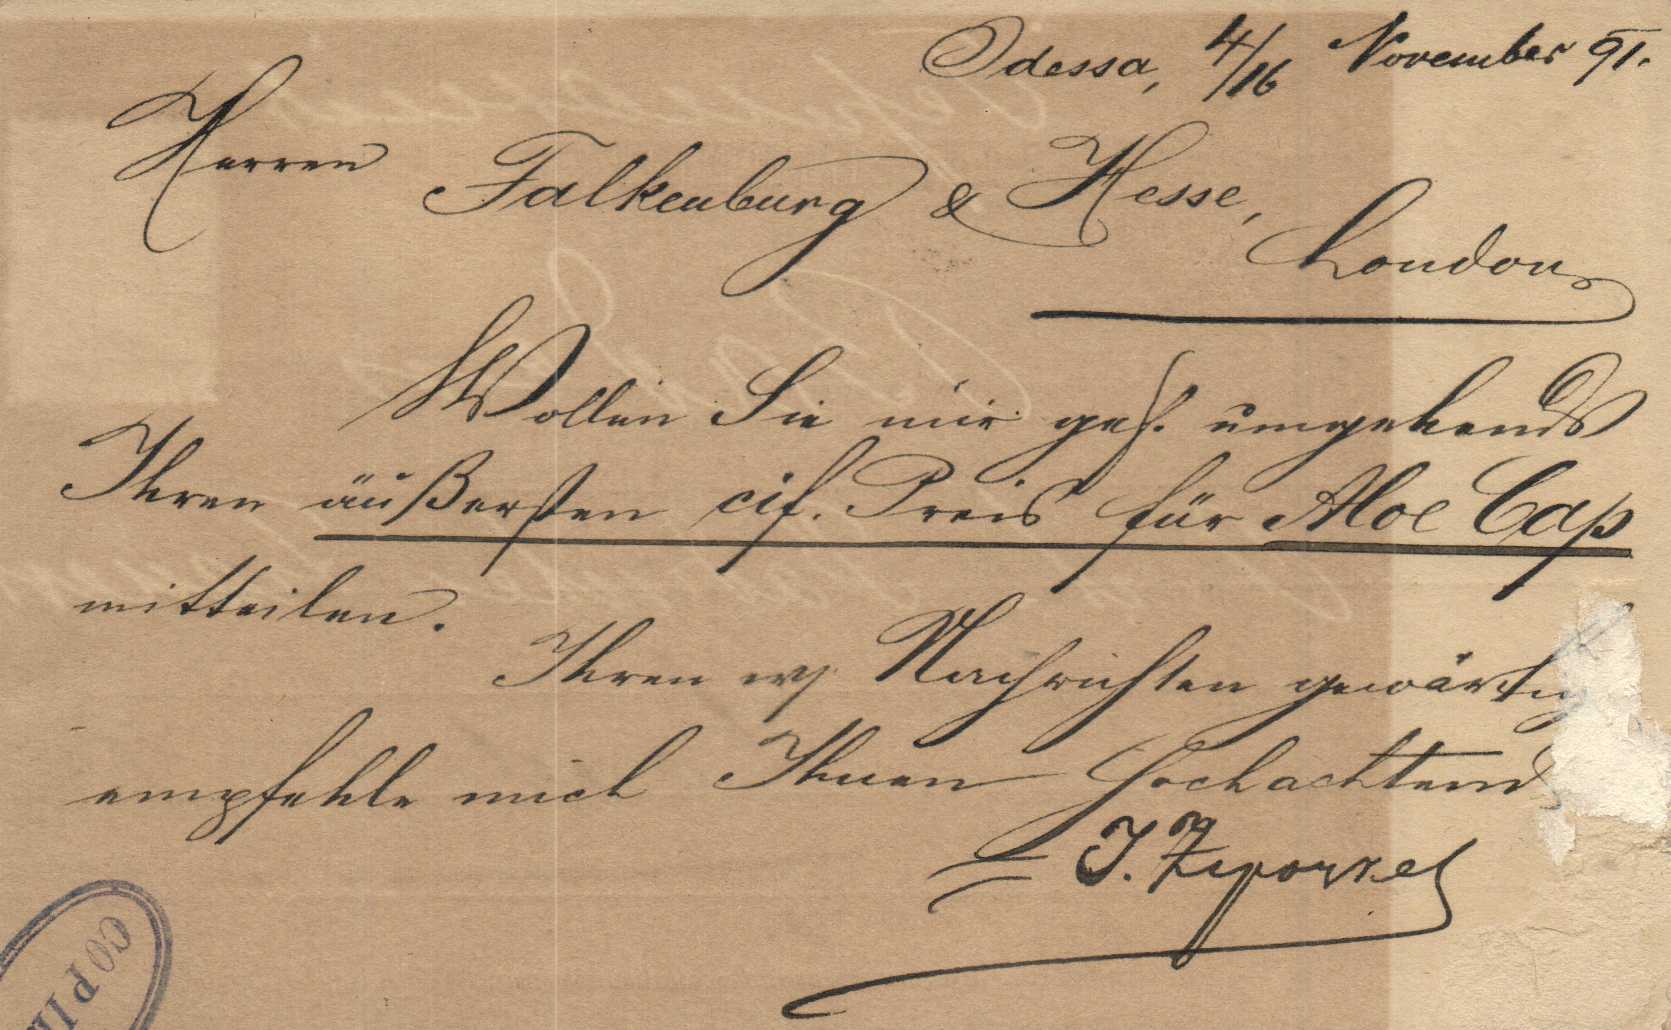 Odessa, 4/16 November 91.
Herren Falkenburg & Hesse,
London
Wollen Sie mir gef. umgehends
Ihren äußersten cif. Preis für Aloe Cap
mitteilen.
Ihren w/ Nachrichten gewärtig
empfehle mich Ihnen Hochachtend
J.
COPI